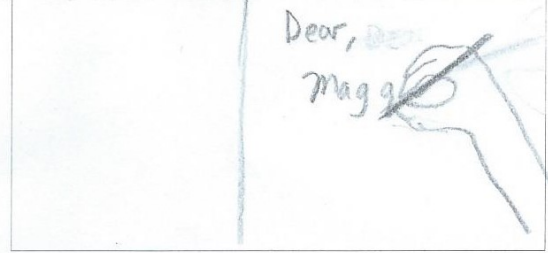 Dear,
Magg